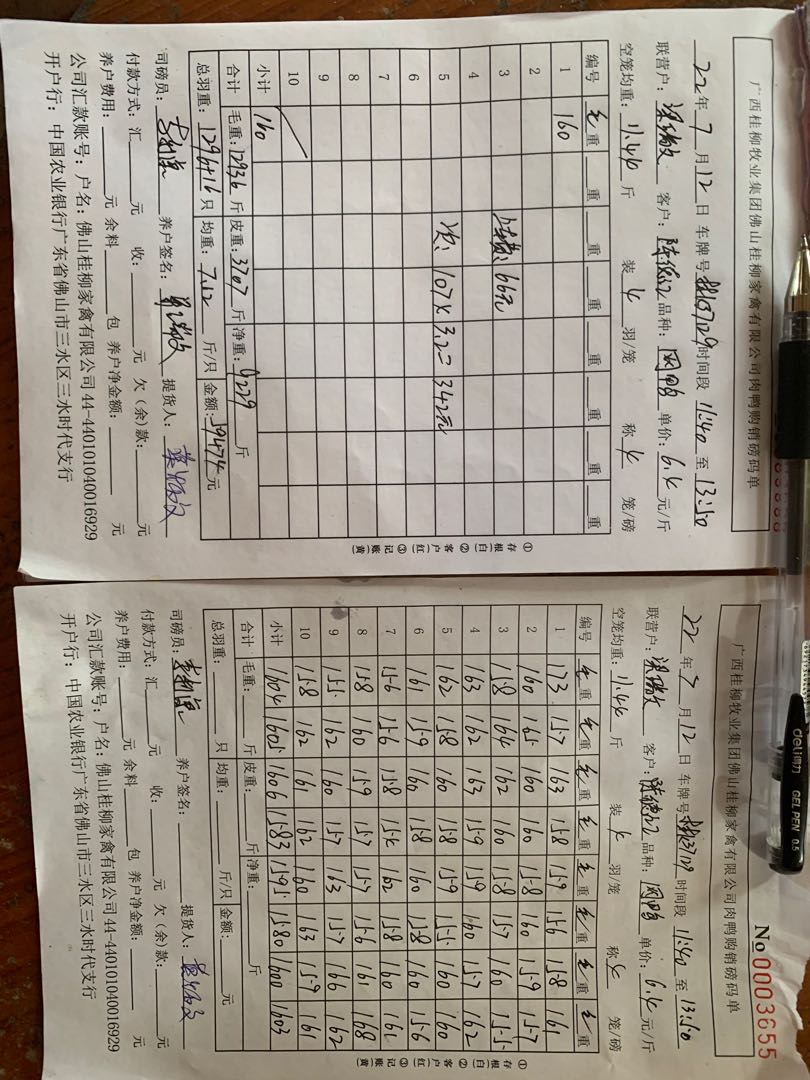 广西桂柳牧业集团佛山桂柳家禽有限公司肉鸭购销磅码单
22年7月12日 车牌号 时间段 11:40 至 13:50
联营户： 客户： 品种： 单价：6.4元/斤
空笼均重：11.44斤 装 羽/笼 称 笼/磅
编号 毛重 重 重 重 重 重 重 重
1 160
2
3 66元
4
5 次：107×3.2=342元
6
7
8
9
10
小计 160
合计 毛重：12936斤 皮重：3707斤 净重：9229斤
总羽重：1296+16只 均重：7.12斤/只 金额：59474元
司磅员： 养户签名： 提货人：
付款方式：汇 元 收： 元 欠(余)款： 元
养户费用： 元 余料 包 养户净金额： 元
公司汇款账号：户名：佛山桂柳家禽有限公司44-440101040016929
开户行：中国农业银行广东省佛山市三水区三水时代支行
①存根(白) ②客户(红) ③记账(黄)
No 0003655
广西桂柳牧业集团佛山桂柳家禽有限公司肉鸭购销磅码单
22年7月12日 车牌号 时间段 11:40 至 13:50
联营户： 客户： 品种： 单价：6.4元/斤
空笼均重：11.44斤 装 羽/笼 称 笼/磅
编号 毛重 毛重 毛重 毛重 毛重 毛重 毛重 毛重
1 173 157 163 158 159 156 158 161
2 160 165 160 160 158 160 159 157
3 158 164 162 160 158 157 160 155
4 163 162 163 159 159 160 157 162
5 162 158 160 158 159 155 160 160
6 161 159 160 158 160 158 160 156
7 156 156 158 154 162 158 160 161
8 158 160 159 157 157 156 161 168
9 155 162 160 157 163 157 166 162
10 158 162 161 162 160 163 159 161
小计 1604 1605 1606 1583 1595 1580 1600 1603
合计 毛重： 斤 皮重： 斤 净重： 斤
总羽重： 只 均重： 斤/只 金额： 元
司磅员： 养户签名： 提货人：
付款方式：汇 元 收： 元 欠(余)款： 元
养户费用： 元 余料 包 养户净金额： 元
公司汇款账号：户名：佛山桂柳家禽有限公司44-440101040016929
开户行：中国农业银行广东省佛山市三水区三水时代支行
①存根(白) ②客户(红) ③记账(黄)
deli得力 GEL PEN 0.5